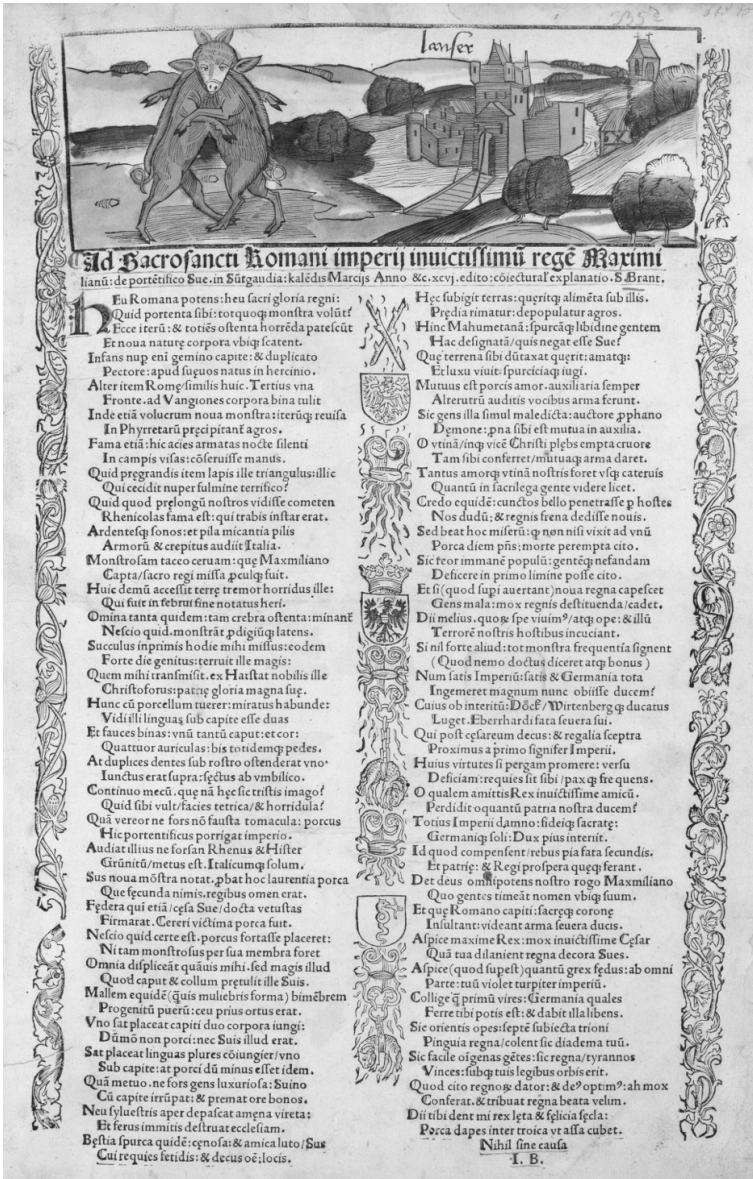 lanser
Ad Sacrosancti Romani imperij inuictissimū regē Maximi
lianū: de portētifico Sue. in Sūtgaudia: kalēdis Marcijs Anno &c. xcvj. edito: cōiectural' explanatio. S. Brant.
HEu Romana potens: heu sacri gloria regni:
Quid portenta sibi: totquoqȝ monstra volūt?
Ecce iterū: & totiēs ostenta horrēda patescūt
Et noua naturę corpora vbiqȝ scatent.
Infans nup eni gemino capite: & duplicato
Pectore: apud suęuos natus in hercinio.
Alter item Romę/similis huic. Tertius vna
Fronte. ad Vangiones corpora bina tulit
Inde etiā volucrum noua monstra: iterūqȝ reuisa
In Phyrretarū pręcipitanr agros.
Fama etiā: hic acies armatas nocte silenti
In campis visas: cōseruisse manus.
Quid pręgrandis item lapis ille triangulus: illic
Qui cecidit nuper fulmine terrifico?
Quid quod pręlongū nostros vidisse cometen
Rhenicolas fama est: qui trabis instar erat.
Ardentesqȝ sonos: et pila micantia pilis
Armorū & crepitus audiit Italia.
Monstrosam taceo ceruam: quę Maxmiliano
Capta/sacro regi missa ꝓculqȝ fuit.
Huic demū accessit terrę tremor horridus ille:
Qui fuit in februi fine notatus heri.
Omina tanta quidem: tam crebra ostenta: minanē
Nescio quid. monstrāt ꝓdigiūqȝ latens.
Succulus inprimis hodie mihi missus: eodem
Forte die genitus: terruit ille magis:
Quem mihi transmisit. ex Hatstat nobilis ille
Christoforus: patrię gloria magna suę.
Hunc cū porcellum tuerer: miratus habunde:
Vidi illi linguas sub capite esse duas
Et fauces binas: vnū tantū caput: et cor:
Quattuor auriculas: bis totidemqȝ pedes.
At duplices dentes sub rostro ostenderat vno·
Iunctus erat supra: sęctus ab vmbilico.
Continuo mecū. quę nā hęc sic tristis imago?
Quid sibi vult/facies tetrica/& horridula?
Quā vereor ne fors nō fausta tomacula: porcus
Hic portentificus porrigat imperio.
Audiat illius ne forsan Rhenus & Hister
Grūnitū/metus est. Italicumqȝ solum.
Sus noua mōstra notat. ꝓbat hoc laurentia porca
Que fęcunda nimis. regibus omen erat.
Fędera qui etiā/cęsa Sue/docta vetustas
Firmarat. Cereri victima porca fuit.
Nescio quid certe est. porcus fortasse placeret:
Ni tam monstrosus per sua membra foret
Omnia displiceāt quāuis mihi. sed magis illud
Quod caput & collum prętulit ille Suis.
Mallem equidē (q̄uis muliebris forma) bimēbrem
Progenitū puerū: ceu prius ortus erat.
Vno sat placeat capiti duo corpora iungi:
Dūmō non porci: nec Suis illud erat.
Sat placeat linguas plures cōiungier/vno
Sub capite: at porci dū minus esset idem.
Quā metuo. ne fors gens luxuriosa: Suino
Cū capite irrūpat: & premat ore bonos.
Neu syluestris aper depascat amęna vireta:
Et ferus immitis destruat ecclesiam.
Bęstia spurca quidē: cęnosa: & amica luto/Sus
Cui requies fetidis: & decus oē: locis.
Hęc subigit terras: queritqȝ alimēta sub illis.
Prędia rimatur: depopulatur agros.
Hinc Mahumetanā: spurcāqȝ libidine gentem
Hac designatā/quis negat esse Sue?
Quę terrena sibi dūtaxat quęrit: amatqȝ:
Et luxu viuit: spurciciaqȝ iugi.
Mutuus est porcis amor. auxiliaria semper
Alterutrū auditis vocibus arma ferunt.
Sic gens illa simul maledicta: auctore ꝓphano
Dęmone: ꝓna sibi est mutua in auxilia.
O vtinā/inqȝ vicē Christi plębs empta cruore
Tam sibi conferret/mutuaqȝ arma daret.
Tantus amorqȝ vtinā nostris foret vsqȝ cateruis
Quantū in sacrilega gente videre licet.
Credo equidē: cunctos bello penetrasse ꝑ hostes
Nos dudū: & regnis frena dedisse nouis.
Sed beat hoc miserū: ꝙ non nisi vixit ad vnū
Porca diem pn̄s: morte perempta cito.
Sic reor immanē populū: gentēqȝ nefandam
Deficere in primo limine posse cito.
Et si (quod supi auertant) noua regna capescet
Gens mala: mox regnis destituenda/cadet.
Dii melius. quoꝝ spe viuimꝰ/atqȝ ope: & illū
Terrorē nostris hostibus incuciant.
Si nil forte aliud: tot monstra frequentia signent
(Quod nemo doctus diceret atqȝ bonus)
Num satis Imperiū: satis & Germania tota
Ingemeret magnum nunc obiisse ducem?
Cuius ob interitū: Dōcꝭ/Wirtenberg qȝ ducatus
Luget. Eberrhardi fata seuera sui.
Qui post cęsareum decus: & regalia sceptra
Proximus a primo signifer Imperii.
Huius virtutes si pergam promere: versu
Deficiam: requies sit sibi/paxqȝ frequens.
O qualem amittis Rex inuictissime amicū.
Perdidit o quantū patria nostra ducem?
Totius Imperii dāmno: fideiqȝ sacratę:
Germaniqȝ soli: Dux pius interiit.
Id quod compensent/rebus pia fata secundis.
Et patrię: & Regi prospera quęqȝ ferant.
Det deus omnipotens nostro rogo Maxmiliano
Quo gentes timeāt nomen vbiqȝ suum.
Et quę Romano capiti: sacręqȝ coronę
Insultant: videant arma seuera ducis.
Aspice maxime Rex: mox inuictissime Cęsar
Quā tua dilanient regna decora Sues.
Aspice (quod supest) quantū grex fędus: ab omni
Parte: tuū violet turpiter imperiū.
Collige q̄ primū vires: Germania quales
Ferre tibi potis est: & dabit illa libens.
Sic orientis opes: septē subiecta trioni
Pinguia regna/colent sic diadema tuū.
Sic facile oīgenas gētes: sic regna/tyrannos
Vinces: subqȝ tuis legibus orbis erit.
Quod cito regnoꝝ dator: & deꝰ optimꝰ: ah mox
Conferat. & tribuat regna beata velim.
Dii tibi dent mi rex lęta & fęlicia sęcla:
Porca dapes inter troica vt assa cubet.
Nihil sine causa
I. B.